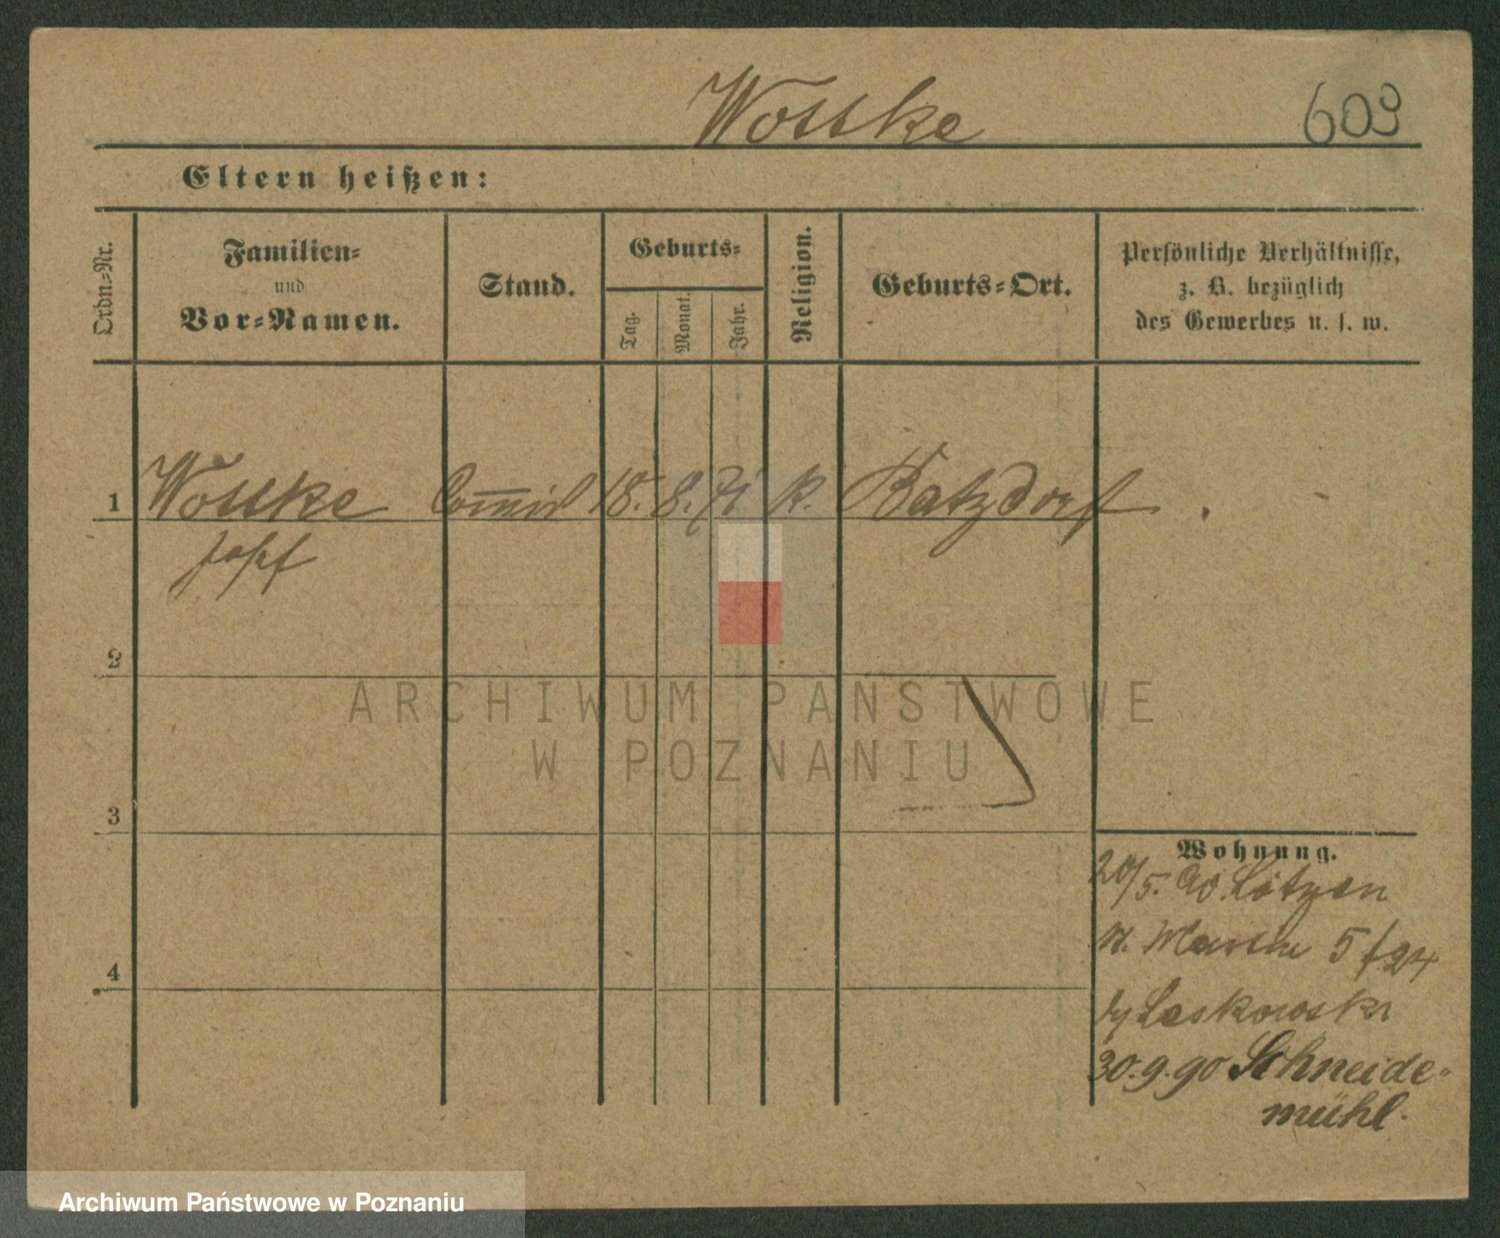 Wottke
609
Eltern heißen:
Ordn.=Nr.
Familien=
und
Vor=Namen.
Stand.
Geburts=
Tag.
Monat.
Jahr.
Religion.
Geburts=Ort.
Persönliche Verhältnisse,
z. B. bezüglich
des Gewerbes u. s. w.
1 Wottke 18. 8. 71 k. Batzdorf
Josef
2
3
4
Wohnung.
20/5. 90. Lötzen
St. Martin 5
Laskowski
30.9.90 Schneide=
mühl.
ARCHIWUM PAŃSTWOWE
W POZNANIU
Archiwum Państwowe w Poznaniu